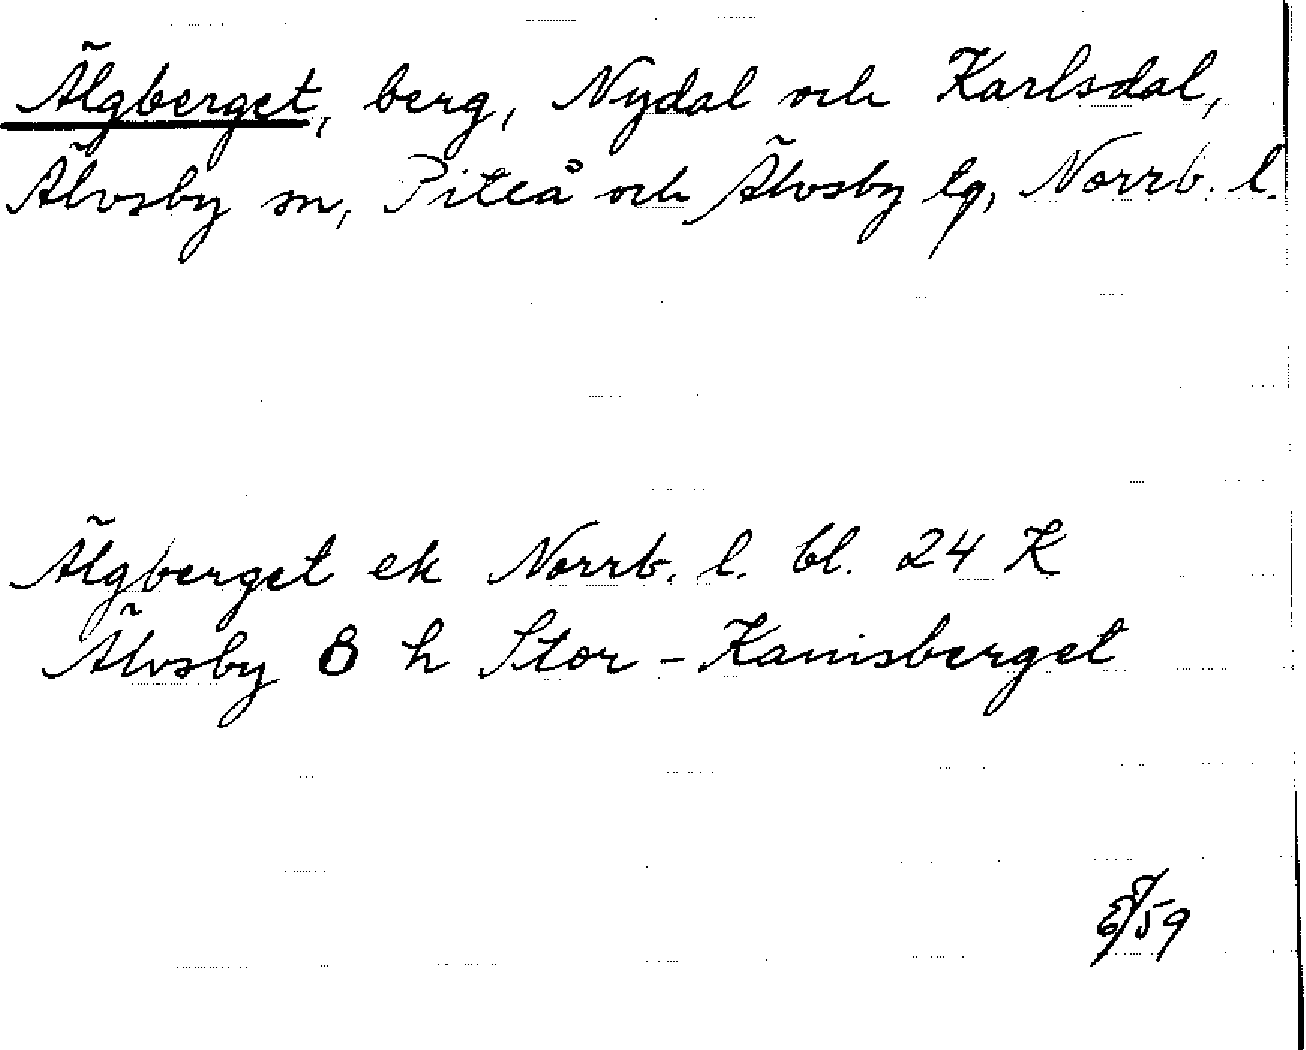 Älgberget, berg, Nydal och Karlsdal,
Älvsby sn, Piteå och Älvsby lg, Norrb. l.
Älgberget ek Norrb. l. bl. 24 K
Älvsby 8 h Stor-Kanisberget